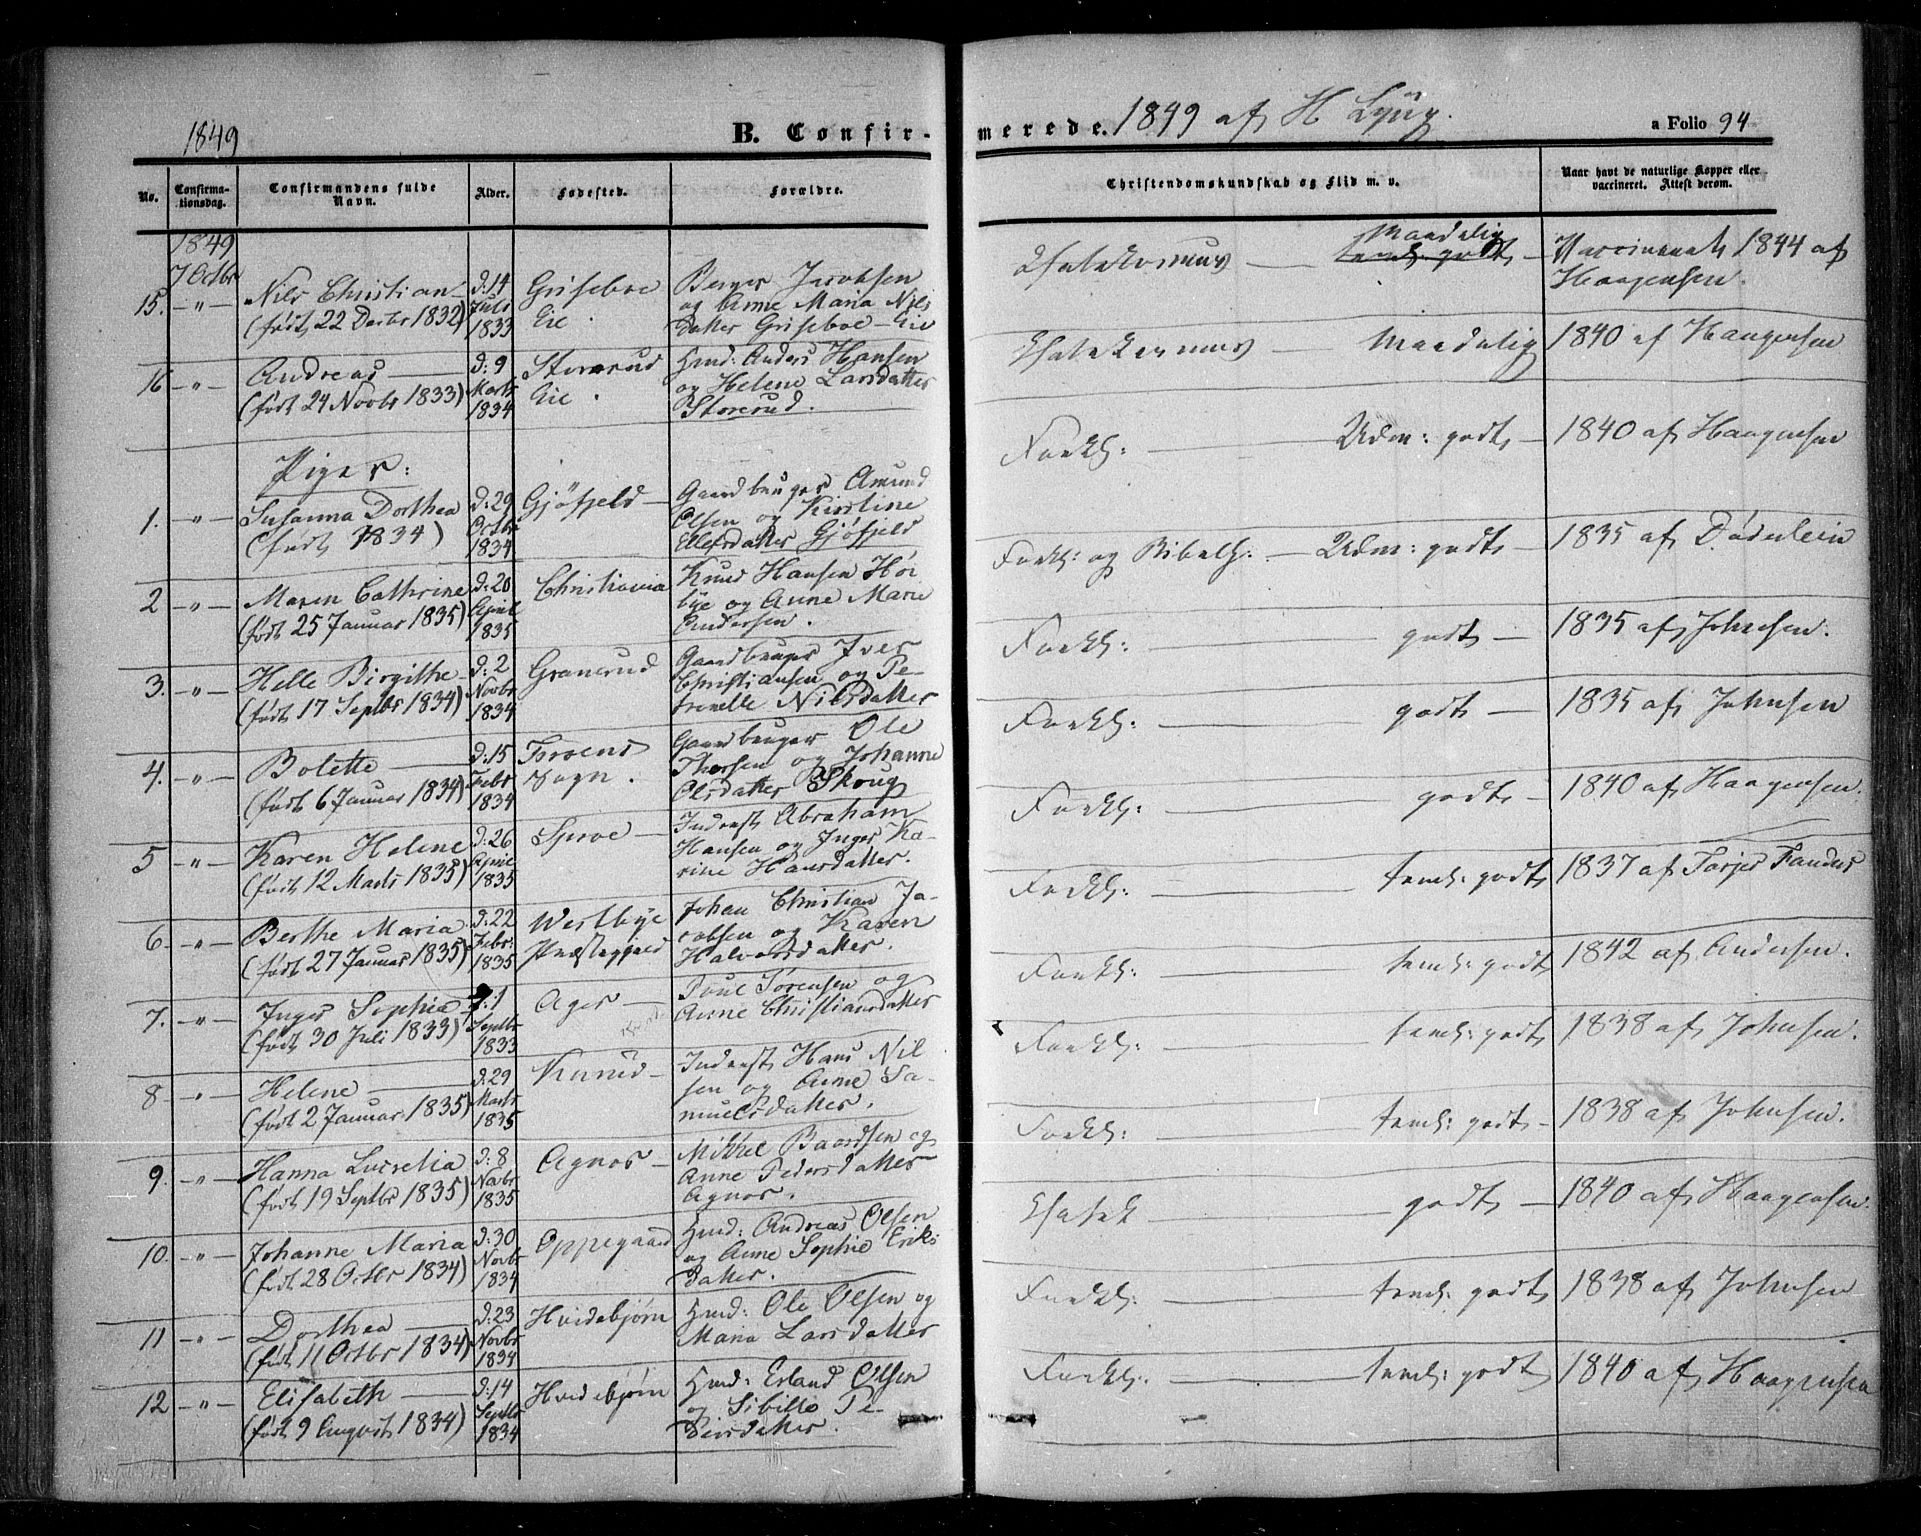 1849
B. Confir-
No.
Confirma-
tionsdag.
Confirmandens fulde
Navn.
Alder.
Fødested.
Forældre.
1849
7 Octbr
15. -"- Nils Christian - d: 14 Griseboe Berger Jacobsen
(født 22 Decbr 1832) Juli Eie. og Anne Maria Nils
1833 datter Griseboe-Eie
16 -"- Andreas — d: 9 Storerud Huusmd: Anders Hansen
(født 24 Novbr 1833) Marts Eie. og Helene Larsdatter
1834 Storerud.
Piger:
1. -"- Susanna Dorthea d: 29 Gjøfjeld - Gaardbruger Amund
(født 1834) Octbr Olsen og Kirstine
1834 Ellefsdatter Gjøfjeld
2 -"- Maren Cathrine d: 20 Christiania Knud Hansen Hør
(født 25 Januar 1835) April bye og Anne Marie
1835 Andersen.
3. -"- Helle Birgithe - d: 2 Granerud Gaardbruger Iver
(født 17 Septbr 1834) Novbr Christiansen og Pe-
1834 tronelle Nilsdatter
4. -"- Bolette — d: 15 Froens Gaardbruger Ole
(født 6 Januar 1834) Febr Sogn. Thorsen og Johanne
1834 Olsdatter Skoug
5 -"- Karen Helene d: 26 Sproe - Inderst Abraham
(født 12 Marts 1835) April Hansen og Inger Ka-
1835 rine Hansdatter.
6. -"- Berthe Maria d: 22 Westbye Johan Christian Ja-
(født 27 Januar 1835) Febr: Præstegjeld cobsen og Karen
1835 Halvorsdatter.
7. -"- Inger Sophia d: 1 Ager - Poul Sørensen og
(født 30 Juli 1833) Septbr Anne Christiansdatter
1833
8 -"- Helene — d: 29 Inderst Hans Nil
(født 2 Januar 1835) Marts sen og Anne Sa-
1835 muelsdatter.
9. -"- Hanna Lucretia d: 8 Agnos - Mikkel Baardsen og
(født 19 Septbr 1835) Novbr Anne Pedersdatter
1835 Agnos.
10. -"- Johanne Maria d: 30 Oppegaard Huusmd: Andreas Olsen
(født 28 Octbr 1834) Novbr og Anne Sophie Eriks
1834 datter.
11 -"- Dorthea — d: 23 Hvidebjørn Huusmd: Ole Olsen og
(født 11 Octbr 1834) Novbr Maria Larsdatter
1834
12 -"- Elisabeth — d: 14 Hvidebjørn Huusmd: Erland Olsen
(født 9 August 1834) Septbr og Sibille Pe-
1834 dersdatter.
merede. 1849 af H Lyng.
a Folio 94
Christendomskundskab og Flid m. v.
Naar havt de naturlige Kopper eller
vaccineret. Attest derom.
Chatekismus — temel: godt Maadelig - Vaccineret 1844 af
Haagensen.
Chatekismus — Maadelig 1840 af Haagensen
Forkl: — Udm: godt - 1840 af Haagensen
Forkl: og Bibelh: - Udm: godt - 1835 af Døderlein
Forkl: — godt - 1835 af Johnsen.
Forkl: — godt - 1835 af Johnsen
Forkl: — godt - 1840 af Haagensen.
Forkl: — temel: godt 1837 af Torjer
Forkl: — temel: godt 1842 af Andersen.
Forkl: — temel: godt 1838 af Johnsen.
Forkl: — temel: godt - 1838 af Johnsen.
Chatek — godt - 1840 af Haagensen.
Forkl: — temel: godt 1838 af Johnsen
Forkl: — temel: godt 1840 af Haagensen